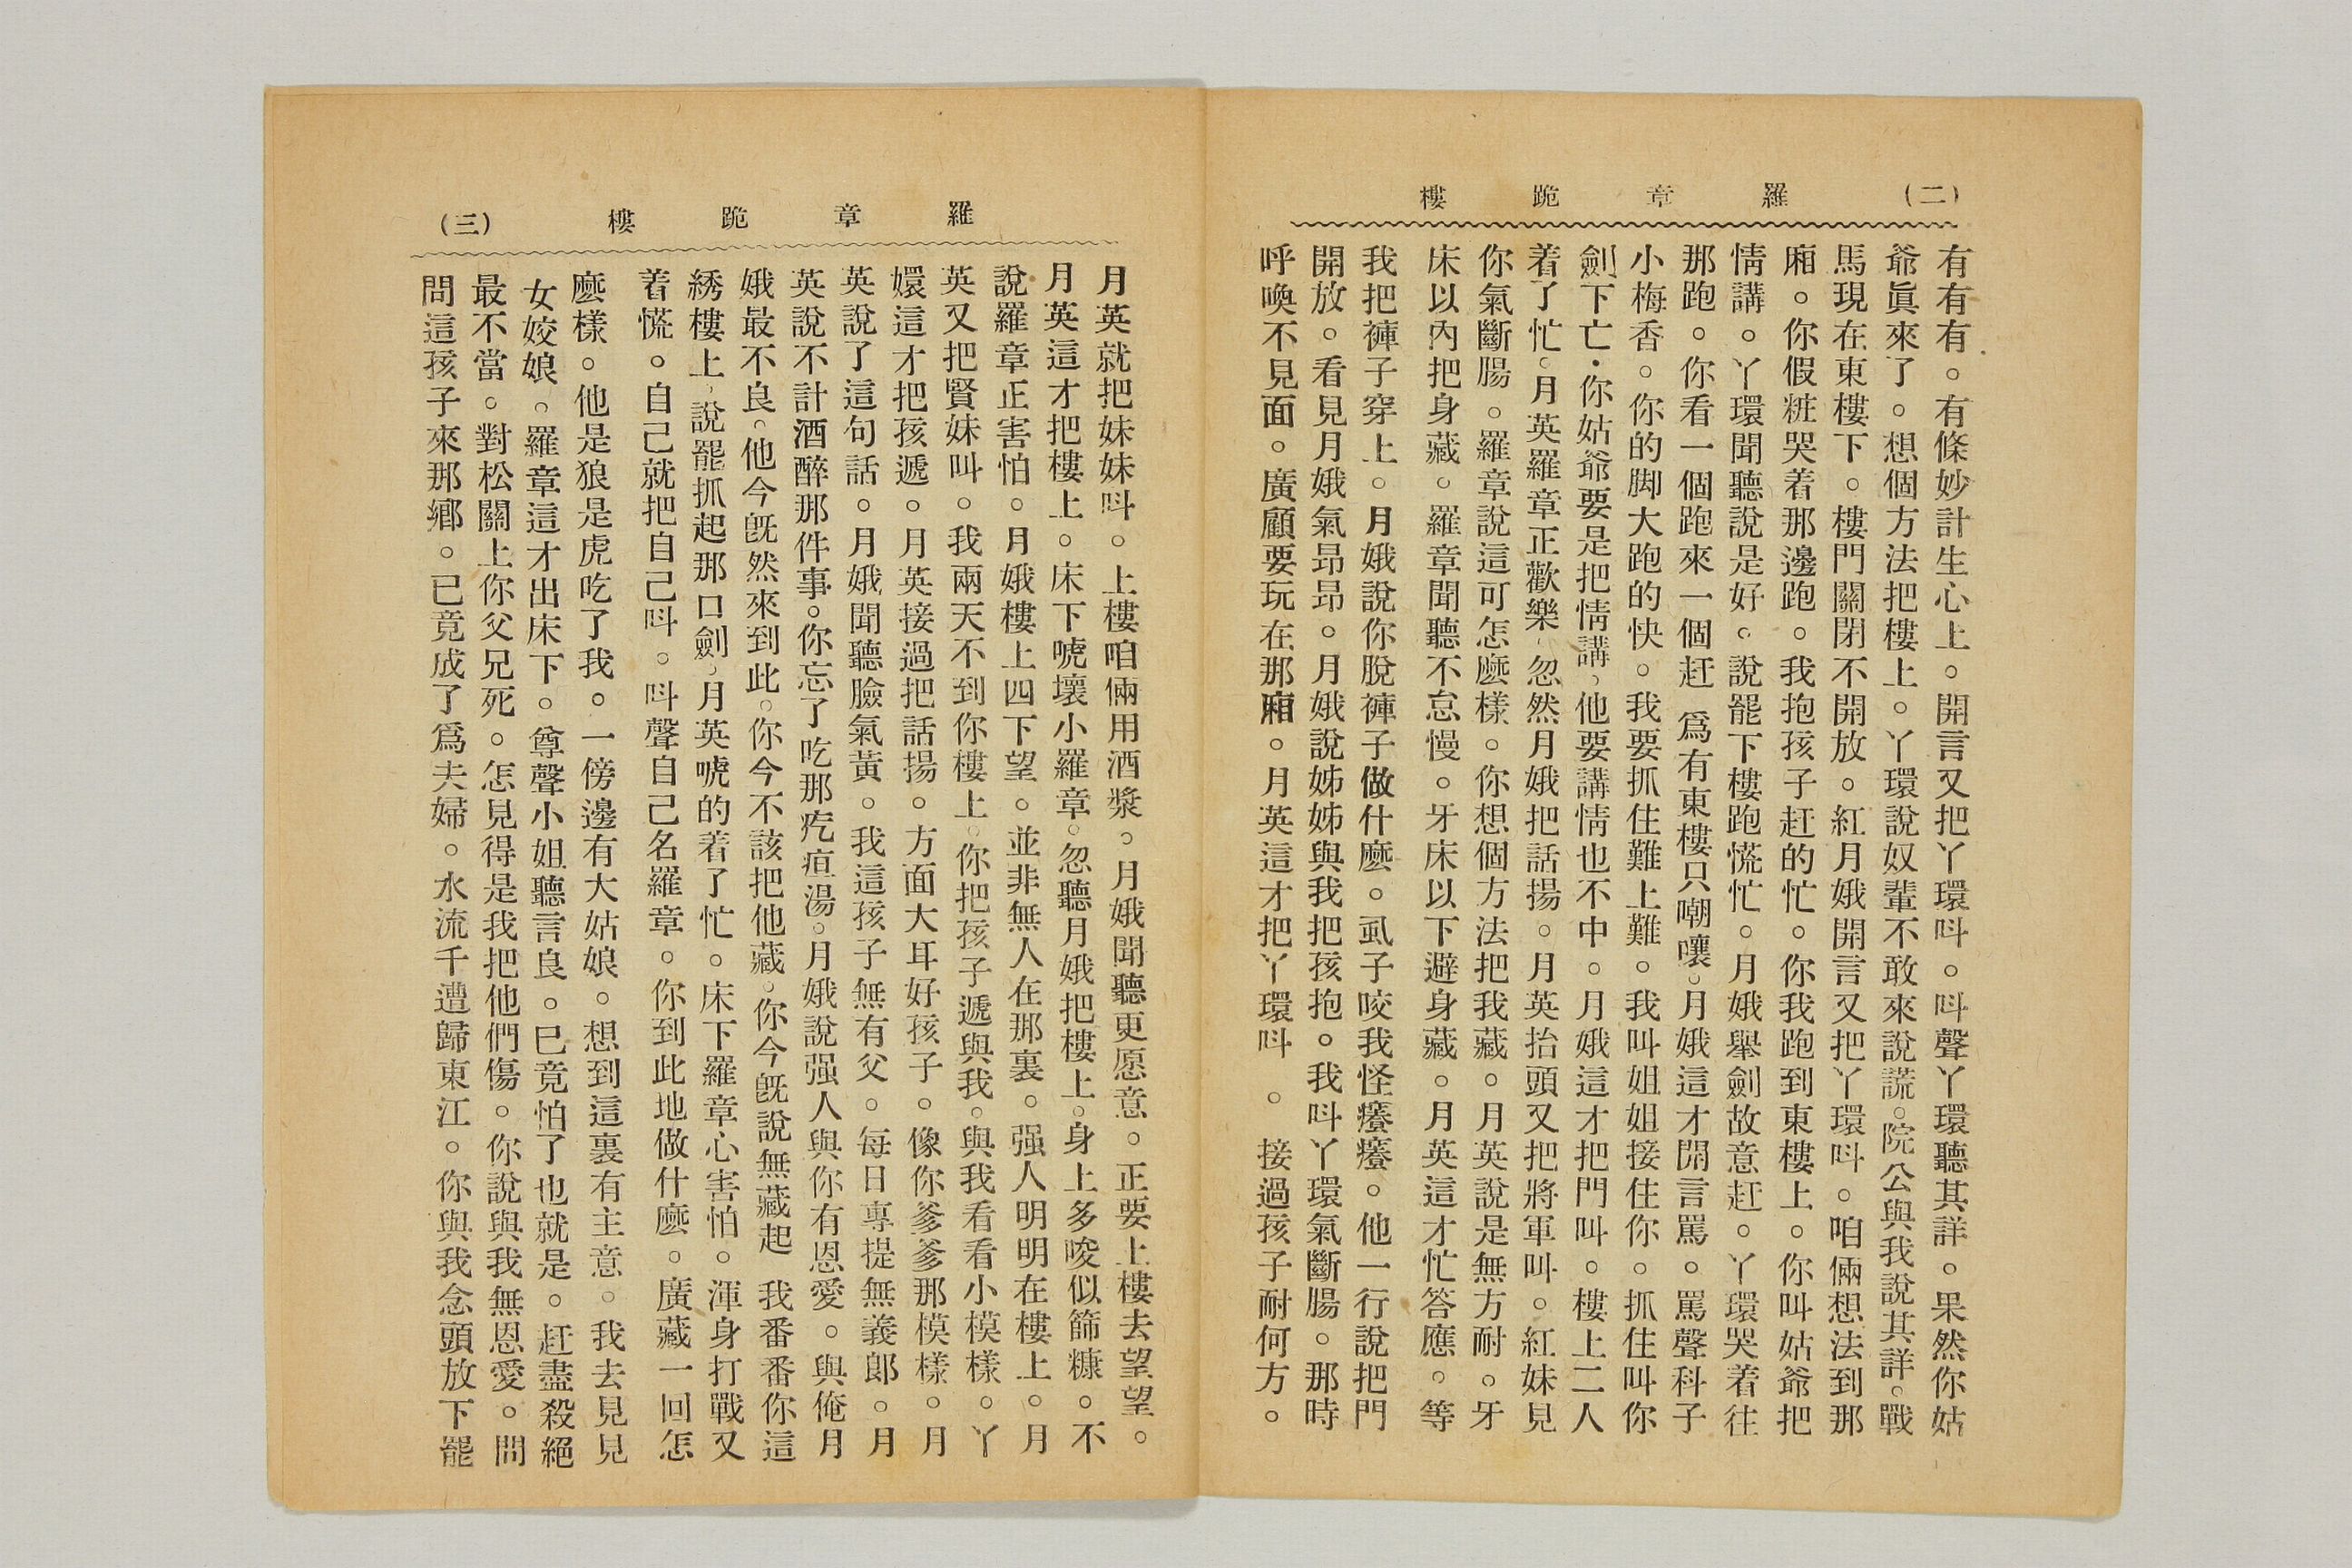 (二) 羅章跪樓
有有有。有條妙計生心上。開言又把丫環呌。呌聲丫環聽其詳。果然你姑
爺眞來了。想個方法把樓上。丫環說奴輩不敢來說謊。院公與我說其詳。戰
馬現在東樓下。樓門關閉不開放。紅月娥開言又把丫環呌。咱倆想法到那
廂。你假粧哭着那邊跑。我抱孩子赶的忙。你我跑到東樓上。你叫姑爺把
情講。丫環聞聽說是好。說罷下樓跑慌忙。月娥舉劍故意赶。丫環哭着往
那跑。你看一個跑來一個赶 爲有東樓只嘲嚷。月娥這才開言罵。罵聲科子
小梅香。你的脚大跑的快。我要抓住難上難。我叫姐姐接住你。抓住叫你
劍下亡·你姑爺要是把情講。他要講情也不中。月娥這才把門叫。樓上二人
着了忙。月英羅章正歡樂。忽然月娥把話揚。月英抬頭又把將軍叫。紅妹見
你氣斷腸。羅章說這可怎麽樣。你想個方法把我藏。月英說是無方耐。牙
床以內把身藏。羅章聞聽不怠慢。牙床以下避身藏。月英這才忙答應。等
我把褲子穿上。月娥說你脫褲子做什麽。虱子咬我怪癢癢。他一行說把門
開放。看見月娥氣昂昂。月娥說姊姊與我把孩抱。我呌丫環氣斷腸。那時
呼喚不見面。廣顧要玩在那廂。月英這才把丫環呌 。 接過孩子耐何方。
羅章跪樓 (三)
月英就把妹妹呌。上樓咱倆用酒漿。月娥聞聽更愿意。正要上樓去望望。
月英這才把樓上。床下唬壞小羅章。忽聽月娥把樓上。身上多唆似篩糠。不
說羅章正害怕。月娥樓上四下望。並非無人在那裏。强人明明在樓上。月
英又把賢妹叫。我兩天不到你樓上。你把孩子遞與我。與我看看小模樣。丫
嬛這才把孩遞。月英接過把話揚。方面大耳好孩子。像你爹爹那模樣。月
英說了這句話。月娥聞聽臉氣黃。我這孩子無有父。每日專提無義郎。月
英說不計酒醉那件事。你忘了吃那疙疸湯。月娥說强人與你有恩愛。與俺月
娥最不良。他今旣然來到此。你今不該把他藏。你今旣說無藏起 我番番你這
綉樓上。說罷抓起那口劍。月英唬的着了忙。床下羅章心害怕。渾身打戰又
着慌。自己就把自己呌。呌聲自己名羅章。你到此地做什麽。廣藏一回怎
麽樣。他是狼是虎吃了我。一傍邊有大姑娘。想到這裏有主意。我去見見
女姣娘。羅章這才出床下。尊聲小姐聽言良。已竟怕了也就是。赶盡殺絕
最不當。對松關上你父兄死。怎見得是我把他們傷。你說與我無恩愛。問
問這孩子來那鄉。已竟成了爲夫婦。水流千遭歸東江。你與我念頭放下罷